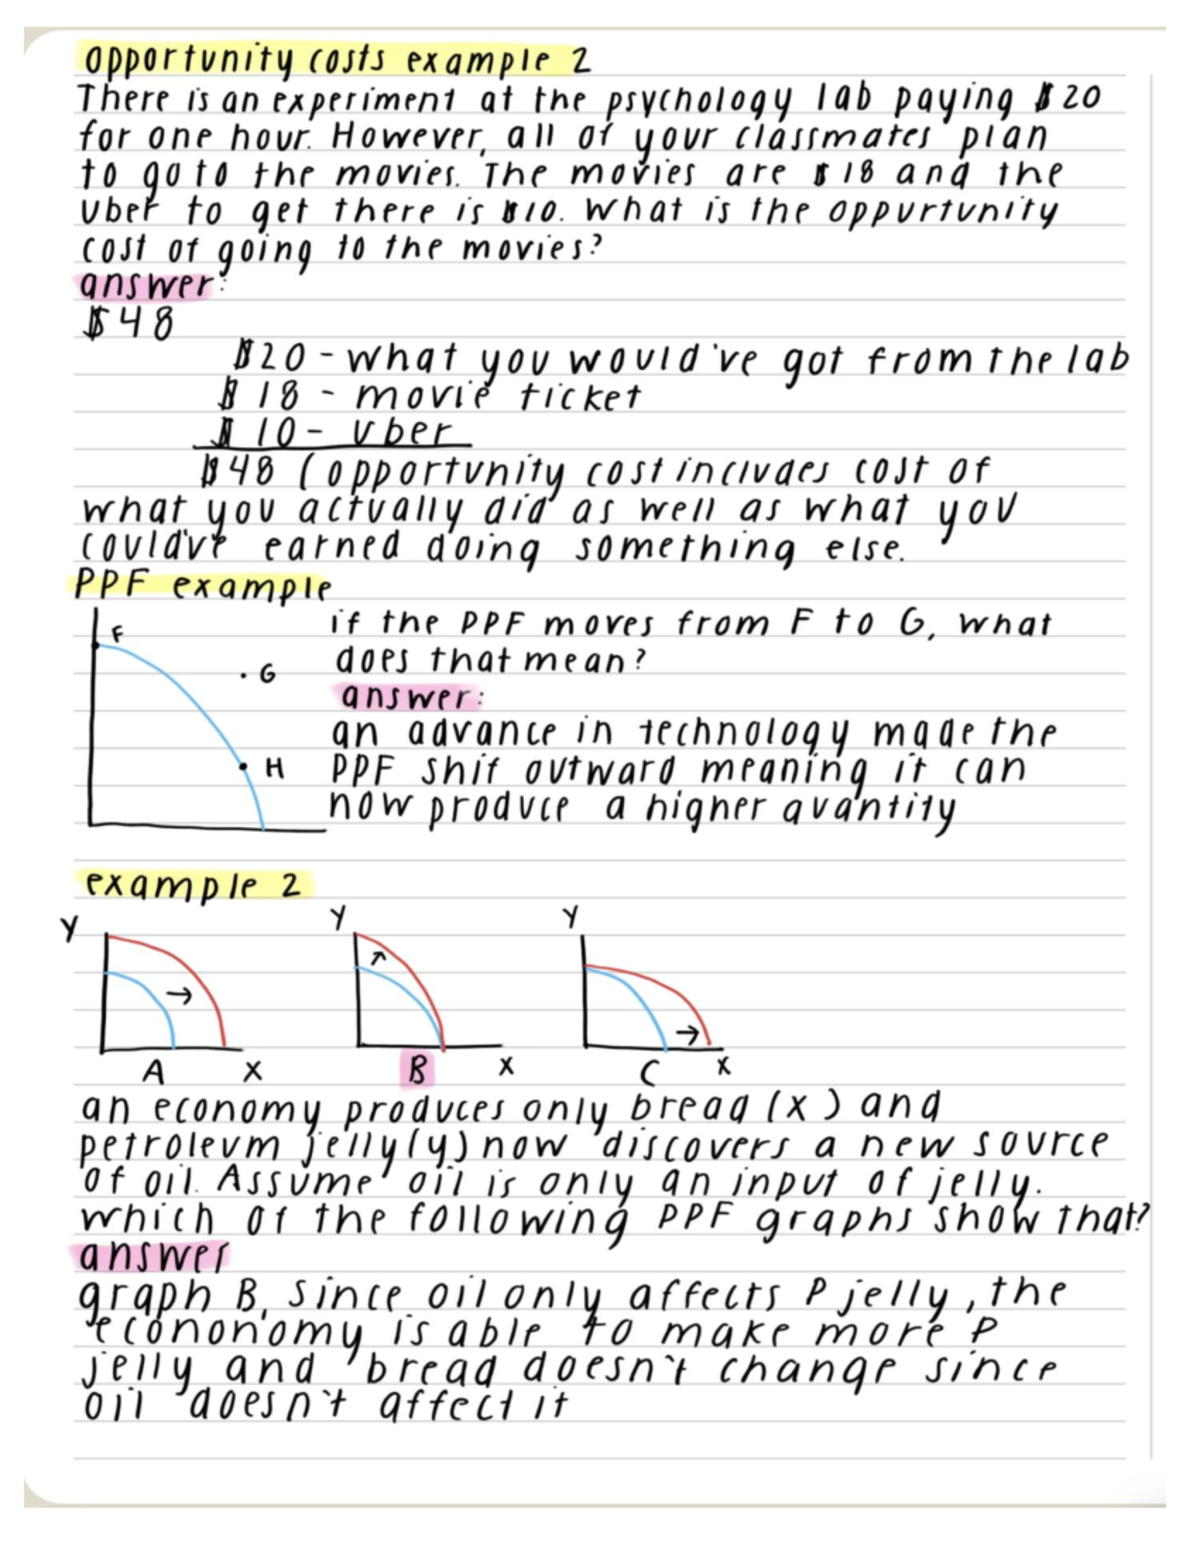 opportunity costs example 2
There is an experiment at the psychology lab paying $20
for one hour. However, all of your classmates plan
to go to the movies. The movies are $18 and the
uber to get there is $10. What is the oppurtunity
cost of going to the movies?
answer:
$48
$20 - what you would've got from the lab
$18 - movie ticket
$10 - uber
$48 (opportunity cost includes cost of
what you actually did as well as what you
could've earned doing something else.
PPF example
F
if the PPF moves from F to G, what
G
does that mean?
answer:
an advance in technology made the
H
PPF shif outward meaning it can
now produce a higher quantity
example 2
Y Y Y
→ ↑ →
A X B X C X
an economy produces only bread (x) and
petroleum jelly (y) now discovers a new source
of oil. Assume oil is only an input of jelly.
which of the following PPF graphs show that?
answer
graph B, since oil only affects P jelly, the
econonomy is able to make more P
jelly and bread doesn't change since
oil doesn't affect it